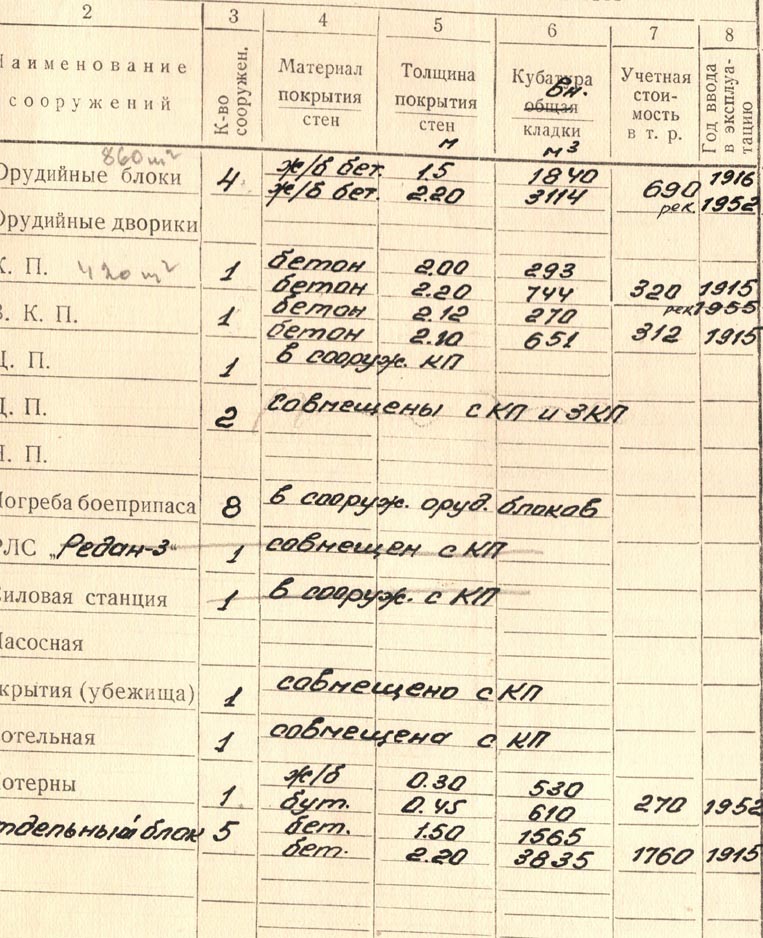 2 3 4 5 6 7 8
Наименование сооружений
К-во сооружен.
Материал покрытия стен
Толщина покрытия стен м
Кубатура вн. общая кладки м³
Учетная стоимость в т. р.
Год ввода в эксплуатацию
860 m²
Орудийные блоки 4 ж/б бет. 1.5 1840 1916
ж/б бет. 2.20 3114 690 рек. 1952
Орудийные дворики
К. П. 420 m² 1 бетон 2.00 293
бетон 2.20 744 320 1915
З. К. П. 1 бетон 2.12 270 рек 1955
бетон 2.10 651 312 1915
Ц. П. 1 в сооруж. КП
Д. П. 2 совмещены с КП и ЗКП
Н. П.
Погреба боеприпаса 8 в сооруж. оруд. блоков
РЛС „Редан-3" 1 совмещен с КП
Силовая станция 1 в сооруж. с КП
Насосная
крытия (убежища) 1 совмещено с КП
Котельная 1 совмещена с КП
Потерны 1 ж/б 0.30 530
бут. 0.45 610 270 1952
тдельный блок 5 бет. 1.50 1565
бет. 2.20 3835 1760 1915